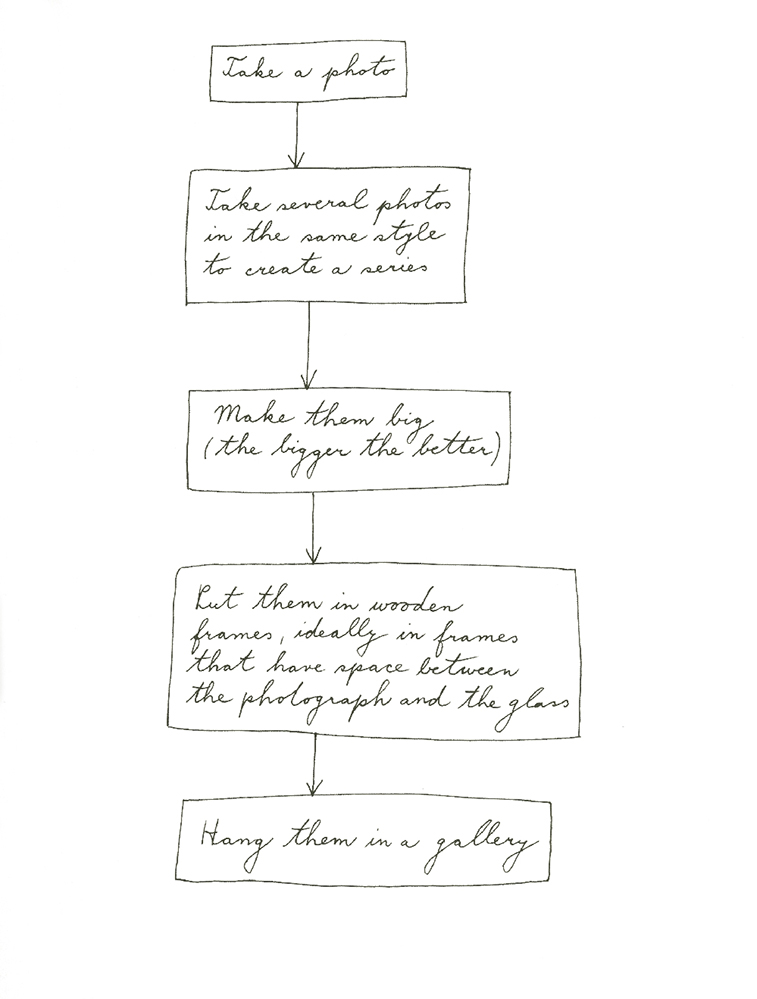 Take a photo
Take several photos
in the same style
to create a series
Make them big
(the bigger the better)
Put them in wooden
frames, ideally in frames
that have space between
the photograph and the glass
Hang them in a gallery